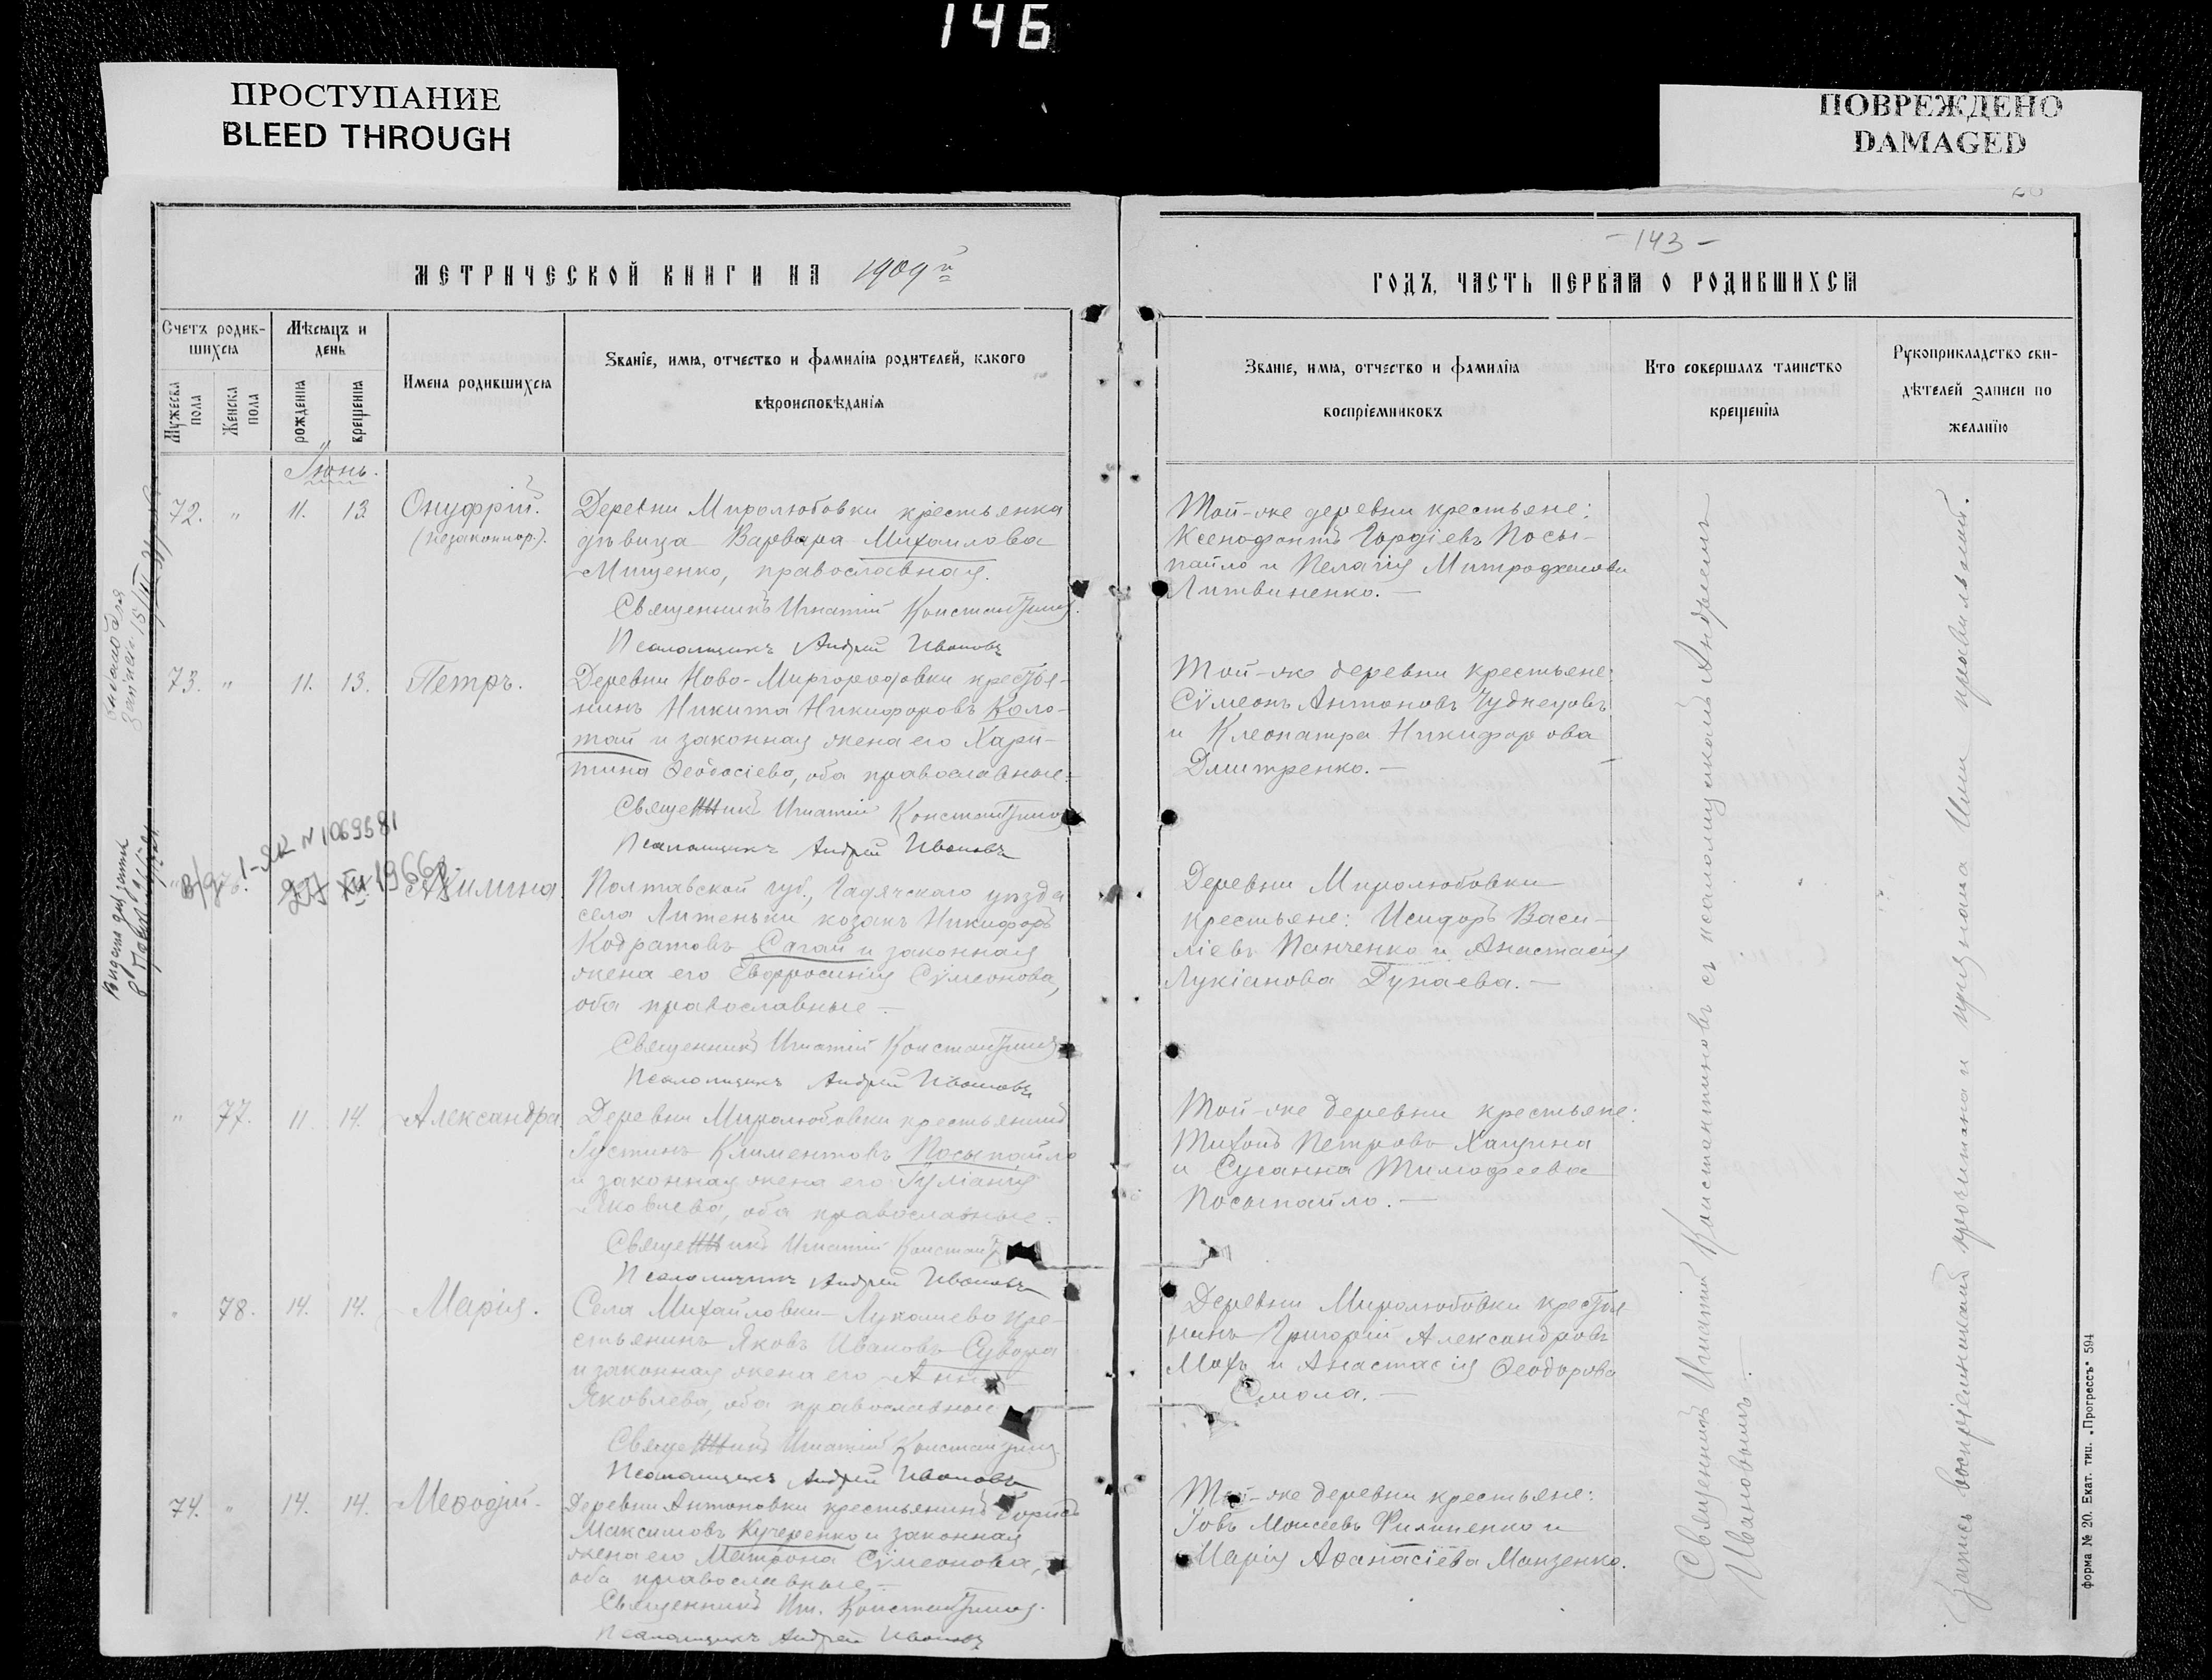 146
ПРОСТУПАНИЕ
BLEED THROUGH
ПОВРЕЖДЕНО
DAMAGED
МЕТРИЧЕСКОЙ КНИГИ НА 1909й
Счетъ родив-
шихся
Мѣсяцъ и
день
Имена родившихся
Званіе, имя, отчество и фамилія родителей, какого
вѣроисповѣданія
Мужеска
пола
Женска
пола
рожденія
крещенія
Іюнь.
72. " 11. 13. Онуфрій.
(незаконнор.).
Деревни Миролюбовки крестьянка
дѣвица Варвара Михаилова
Мищенко, православная.
Священникъ Игнатій Константинов.
Псаломщикъ Андрей Ивановъ
73. " 11. 13. Петръ.
Деревни Ново-Миргородовки крестья-
нинъ Никита Никифоровъ Коло-
тай и законная жена его Хари-
тина Ѳеодосіева, оба православные
Священникъ Игнатій Константинов
Псаломщикъ Андрей Ивановъ
1-ЯК N 1069581
XII 1966
Акилина
Полтавской губ., Гадячскаго уѣзда
села Лютеньки козакъ Никифоръ
Кодратовъ Сагай и законная
жена его Евфросинія Сѵмеонова,
оба православные
Священникъ Игнатій Константинов
Псаломщикъ Андрей Ивановъ
" 77. 11 14. Александра
Деревни Миролюбовки крестьянинъ
Іустинъ Климентовъ Посыпайло
и законная жена его Іуліанія
Яковлева, оба православные
Священникъ Игнатій Констант
Псаломщикъ Андрей Ивановъ
" 78. 14. 14. Марія.
Села Михайловки-Лукашево кре-
стьянинъ Яковъ Ивановъ Сувора
и законная жена его Анна
Яковлева, оба православные
Священникъ Игнатій Константинов
Псаломщикъ Андрей Ивановъ
74. " 14. 14. Меѳодій
Деревни Антоновки крестьянинъ Борисъ
Максимовъ Кучеренко и законная
жена его Матрона Сѵмеонова,
оба православные
Священникъ Игн. Константинов.
Псаломщикъ Андрей Ивановъ
-143-
ГОДЪ, ЧАСТЬ ПЕРВАЯ О РОДИВШИХСЯ
Званіе, имя, отчество и фамилія
воспріемниковъ
Кто совершалъ таинство
крещенія
Рукоприкладство сви-
дѣтелей записи по
желанію
Той-же деревни крестьяне:
Ксенофонтъ Гордіевъ Посы-
пайло и Пелагія Митрофанова
Литвиненко.
Той-же деревни крестьяне:
Сѵмеонъ Антоновъ Чуднецовъ
и Клеопатра Никифорова
Дмитренко.
Деревни Миролюбовки
крестьяне: Исидоръ Васи-
ліевъ Панченко и Анастасія
Лукіанова Гунаева.
Той-же деревни крестьяне:
Тихонъ Петровъ Хацина
и Сусанна Тимофеева
Посыпайло.
Деревни Миролюбовки крестья-
нинъ Григорій Александровъ
Махъ и Анастасія Ѳеодорова
Смола.
Той-же деревни крестьяне:
Іовъ Моисеевъ Филипенко и
Марія Аѳанасіева Манзенко.
Священникъ Игнатій Константиновъ съ псаломщикомъ Андреемъ
Ивановымъ.
Запись воспріемниками прочитана и признана Ими правильной.
форма № 20. Екат. тип. „Прогрессъ" 594